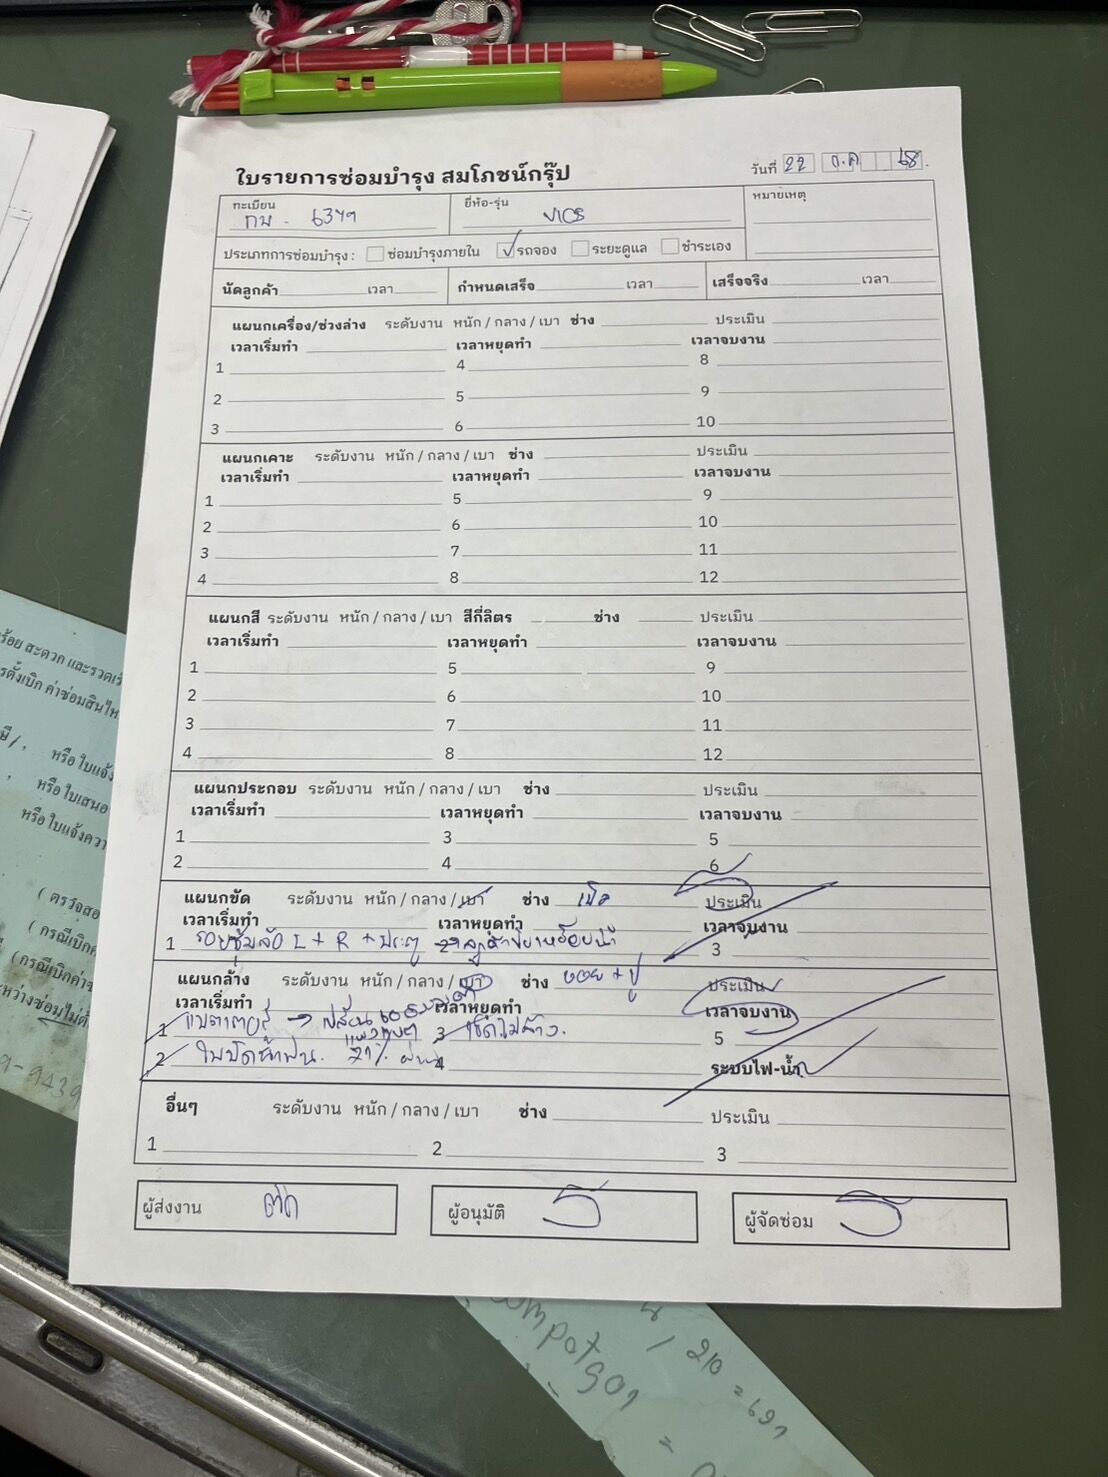 ใบรายการซ่อมบำรุง สมโภชน์กรุ๊ป
วันที่ 22 ก.ค 68
ทะเบียน กษ - 6379
ยี่ห้อ-รุ่น VIOS
หมายเหตุ
ประเภทการซ่อมบำรุง : ซ่อมบำรุงภายใน ✓ รถจอง ระยะดูแล ชำระเอง
นัดลูกค้า เวลา กำหนดเสร็จ เวลา เสร็จจริง เวลา
แผนกเครื่อง/ช่วงล่าง ระดับงาน หนัก / กลาง / เบา ช่าง ประเมิน
เวลาเริ่มทำ เวลาหยุดทำ เวลาจบงาน
1 4 8
2 5 9
3 6 10
แผนกเคาะ ระดับงาน หนัก / กลาง / เบา ช่าง ประเมิน
เวลาเริ่มทำ เวลาหยุดทำ เวลาจบงาน
1 5 9
2 6 10
3 7 11
4 8 12
แผนกสี ระดับงาน หนัก / กลาง / เบา สีกี่ลิตร ช่าง ประเมิน
เวลาเริ่มทำ เวลาหยุดทำ เวลาจบงาน
1 5 9
2 6 10
3 7 11
4 8 12
แผนกประกอบ ระดับงาน หนัก / กลาง / เบา ช่าง ประเมิน
เวลาเริ่มทำ เวลาหยุดทำ เวลาจบงาน
1 3 5
2 4 6
แผนกขัด ระดับงาน หนัก / กลาง / เบา ช่าง ประเมิน
เวลาเริ่มทำ เวลาหยุดทำ เวลาจบงาน
1 รอยซุ้มล้อ L + R + ประตู 2 3
แผนกล้าง ระดับงาน หนัก / กลาง / เบา ช่าง ประเมิน
เวลาเริ่มทำ เวลาหยุดทำ เวลาจบงาน
1 แบตเตอรี่ → 3 5
2 ใบปัดน้ำฝน. 71% 4 ระบบไฟ-น้ำ
อื่นๆ ระดับงาน หนัก / กลาง / เบา ช่าง ประเมิน
1 2 3
ผู้ส่งงาน ผู้อนุมัติ ผู้จัดซ่อม
ร้อย สะดวก และรวดเร็
รตั้งเบิก ค่าซ่อมสินไห
หรือ ใบแจ้ง
หรือ ใบเสนอ
หรือ ใบแจ้งควา
( ตรวจสอ
( กรณีเบิก
(กรณีเบิกค่า
หว่างซ่อมไม่
9-9439
/ 210 = 697